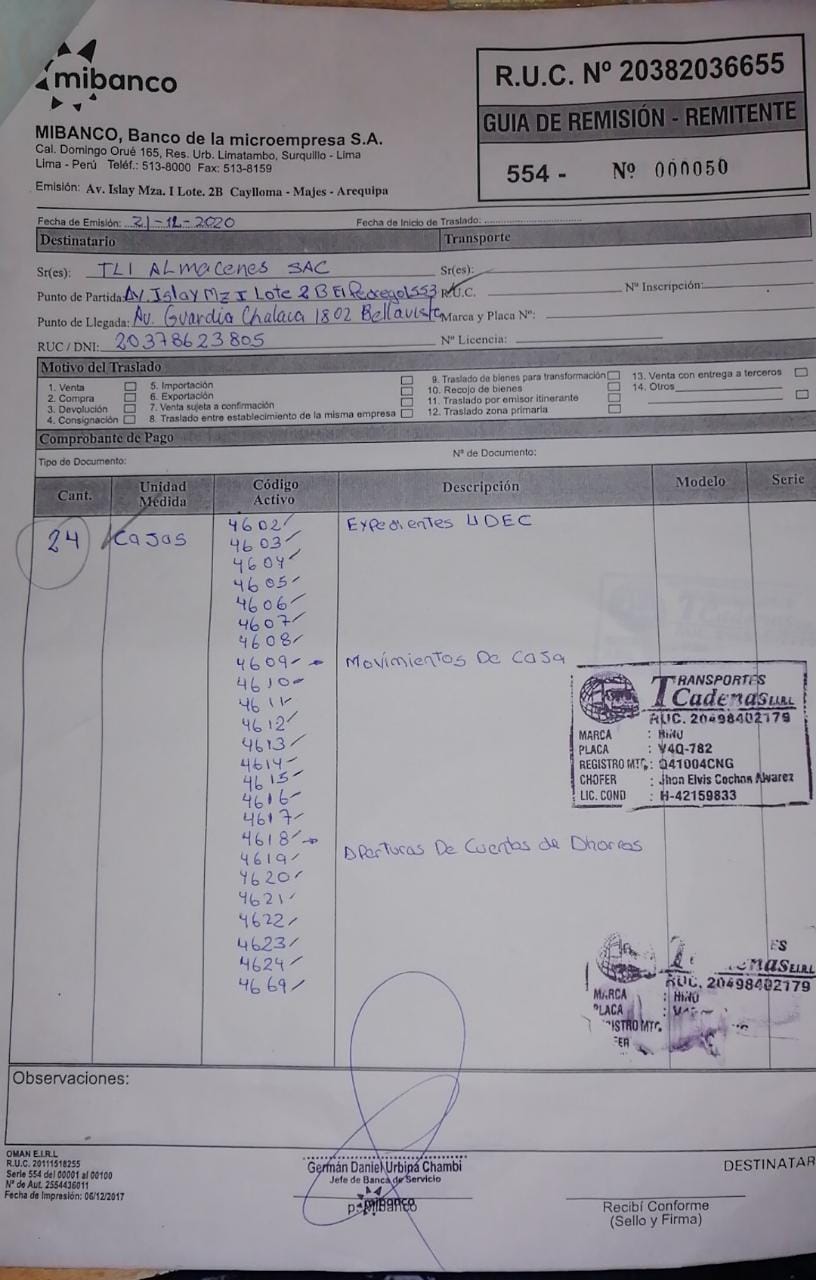 mibanco
R.U.C. Nº 20382036655
GUIA DE REMISIÓN - REMITENTE
554 - Nº 000050
MIBANCO, Banco de la microempresa S.A.
Cal. Domingo Orué 165, Res. Urb. Limatambo, Surquillo - Lima
Lima - Perú Teléf.: 513-8000 Fax: 513-8159
Emisión: Av. Islay Mza. I Lote. 2B Caylloma - Majes - Arequipa
Fecha de Emisión: 21-12-2020 Fecha de Inicio de Traslado:
Destinatario Transporte
Sr(es): TLI ALmacenes SAC Sr(es):
Punto de Partida: Av. Islay Mz I Lote 2 B El Pedregal 553 R.U.C. Nº Inscripción:
Punto de Llegada: Av. Guardia Chalaca 1802 Bellavista Marca y Placa Nº:
RUC / DNI: 20378623805 Nº Licencia:
Motivo del Traslado
1. Venta 5. Importación 9. Traslado de bienes para transformación 13. Venta con entrega a terceros
2. Compra 6. Exportación 10. Recojo de bienes 14. Otros
3. Devolución 7. Venta sujeta a confirmación 11. Traslado por emisor itinerante
4. Consignación 8. Traslado entre establecimiento de la misma empresa 12. Traslado zona primaria
Comprobante de Pago
Tipo de Documento: Nº de Documento:
Cant. Unidad Medida Código Activo Descripción Modelo Serie
4602 Expedientes UDEC
24 Cajas 4603
4604
4605
4606
4607
4608
4609 Movimientos De Caja
4610
4611
4612
4613
4614
4615
4616
4617
4618 Aperturas De Cuentas de Ahorros
4619
4620
4621
4622
4623
4624
4669
TRANSPORTES
Cadenas E.I.R.L
RUC. 20498402179
MARCA : HINO
PLACA : V4Q-782
REGISTRO MTC. : 041004CNG
CHOFER : Jhon Elvis Cochon Alvarez
LIC. COND : H-42159833
ES
nas E.I.R.L
RUC. 20498402179
MARCA : HINO
PLACA
ISTRO MTC.
FER
Observaciones:
OMAN E.I.R.L
R.U.C. 20111518255
Serie 554 del 00001 al 00100
Nº de Aut. 2554436011
Fecha de Impresión: 06/12/2017
Germán Daniel Urbina Chambi
Jefe de Banca de Servicio
p. mibanco
DESTINATAR
Recibí Conforme
(Sello y Firma)